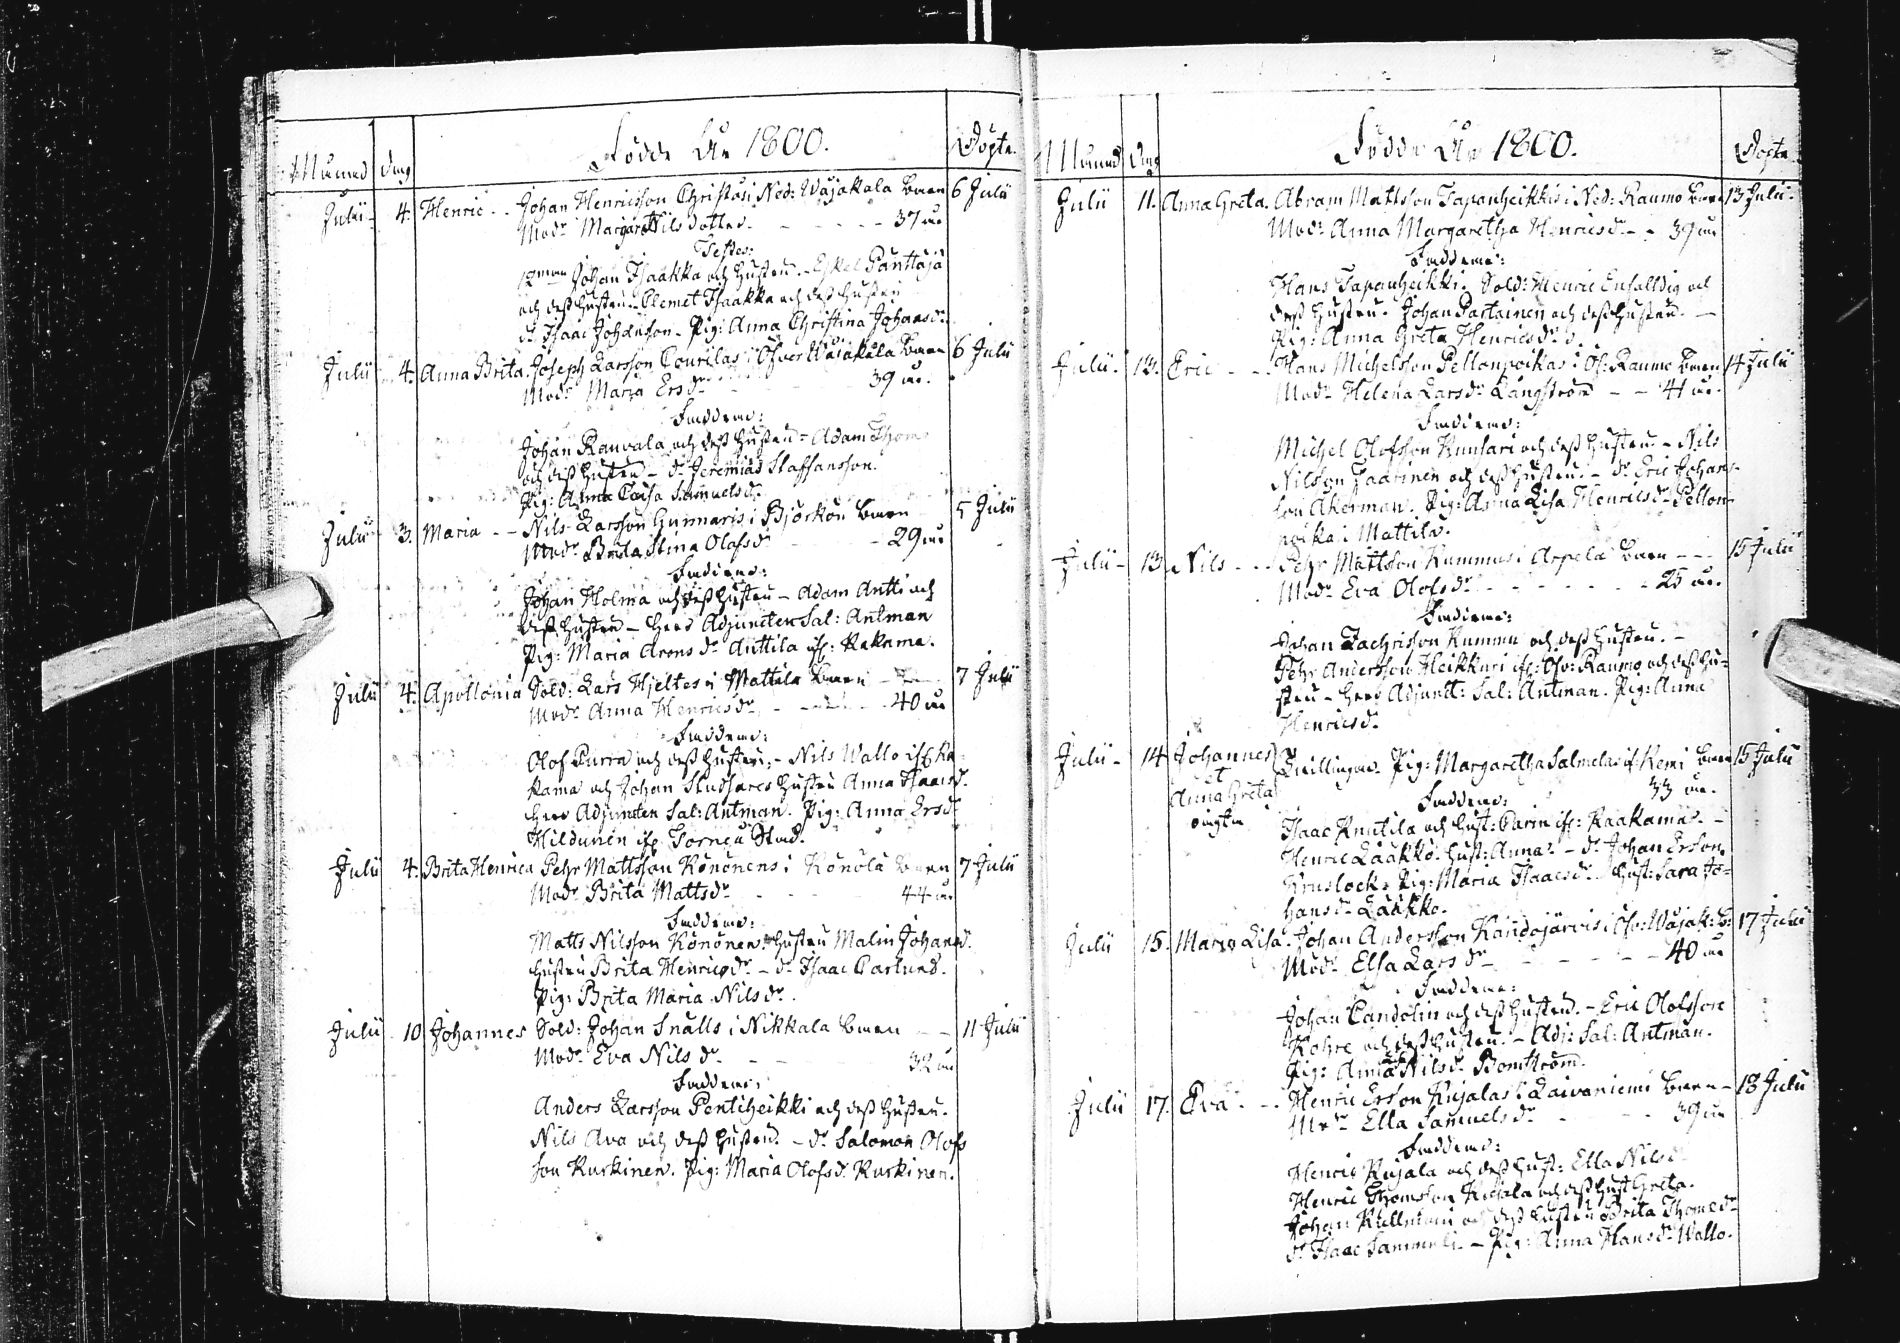 Månad dag Födde År 1800. Döpte.
Julii 4. Henric Johan Henricsson Christusi Ned: Wojakala barn 6 Julii
Mod: Margar: Nils dotter 37 år
Testes:
Johan Isaakka och hustru. Eskel Panttaja
och dess hustru. Clemet Isaakka och dess hustru
dr Isaac Johansson. Pig: Anna Christina Johansdr
Julii 4. Anna Brita. Joseph Larsson Courilas i Öfver Wojakala barn 6 Julii
Modr Maria Ersdr 39 år.
Faddrar:
Johan Rauvala och dess hustru - Adam Thom
och dess hustru - dr Jeremias Staffansson.
Pig: Anna Caisa Samuelsdr
Julii 3. Maria Nils Larsson Gunnaris i Björkön barn 5 Julii
Modr Brita Stina Olofsdr 29 år
Faddrar:
Johan Holma och dess hustru - Adam Antti och
dess hustru - Herr Adjuncten Sal: Antman
Pig: Maria Aronsdr Anttila if: Kakama.
Julii 4. Apollonia Sold: Lars Hjeltes i Mattila barn 7 Julii
Modr Anna Henricsdr 40 år
Faddrar:
Olof Purra och dess hustru, - Nils Wallo if Ka
kama och Johan Studhares hustru Anna Isaacsd.
Herr Adjuncten Sal: Antman. Pig: Anna Ersdr
Hildunen if. Torneå Stad.
Julii 4. Brita Henrica Pehr Mattsson Könönens i Könölä barn 7 Julii
Modr Brita Mattsdr 44 år
Faddrar:
Matts Nilsson Könönen, hustru Malin Johansd.
hustru Brita Henricsdr - dr Isaac Parlund.
Pig: Brita Maria Nilsdr.
Julii 10 Johannes Sold: Johan Snälls i Nikkala barn 11 Julii
Modr Eva Nilsdr 32 år
Faddrar:
Anders Larsson Pentiheikki och dess hustru.
Nils Ava och dess hustru. - dr Salomon Olofs
son Kurkinen. Pig: Maria Olofsd. Kurkinen.
Månad dag Födde År 1800. Döpte.
Julii 11. Anna Greta. Abram Mattsson Tapanheikkis i Ned: Raumo barn 13 Julii
Modr Anna Margaretha Henricsd. 39 år
Faddrar:
Hans Tapanheikki. Sold: Henric Enfalldig och
dess hustru. Johan Partainen och dess hustru.
Pig: Anna Greta Henricsdr
Julii 13. Eric Hans Michelsson Pellonpoikas i Öf: Raumo barn 14 Julii
Modr Helena Larsdr Långström 41 år.
Faddrar:
Michel Olofsson Kunsari och dess hustru. - Nils
Nilsson Jaarinen och dess hustru. - dr Eric Johans-
son Åkerman. Pig: Anna Lisa Henricsdr Pellon-
poika i Mattila.
Julii 13 Nils Pehr Mattsson Kummus i Arpela barn 15 Julii
Modr Eva Olofsdr 25 år.
Faddrar:
Johan Zachrisson Kummu och dess hustru. -
Pehr Andersson Heikkuri if: Öfv: Raumo och dess hu-
stru - Herr Adjunct: Sal: Antman. Pig: Anna
Henricsdr
Julii 14 Johannes Tvillingar. Pig: Margaretha Salmelas if Kemi barn 15 Julii
et
Anna Greta 33 år.
oägta
Faddrar:
Isaac Knutila och hust: Carin if: Kaakama. -
Henric Laakko. hust: Anna. - dr Johan Ersson
Kruslock. Pig: Maria Isaacsdr. hust: Sara Jo-
hansdr Laakko.
Julii 15. Maria Lisa. Johan Andersson Kandojärvis i Öfv: Wojak: b: 17 Julii
Modr Elsa Larsdr 40 år
Faddrar:
Johan Candolin och dess hustru. - Eric Olofsson
Kohre och dess hustru. - Adj: Sal: Antman.
Pig: Anna Nilsdr Bomström.
Julii 17. Eva Henric Ersson Kujalas i Laivaniemi barn 18 Julii
Modr Ella Samuelsdr 39 år
Faddrar:
Henric Kujala och dess hust: Ella Nilsdr
Henric Thomsson Kujala och dess hust Greta.
Johan Kallmani och dess hustru Brita Thomsdr
dr Isaac Sammeli - Pig: Anna Hansdr Wallo.